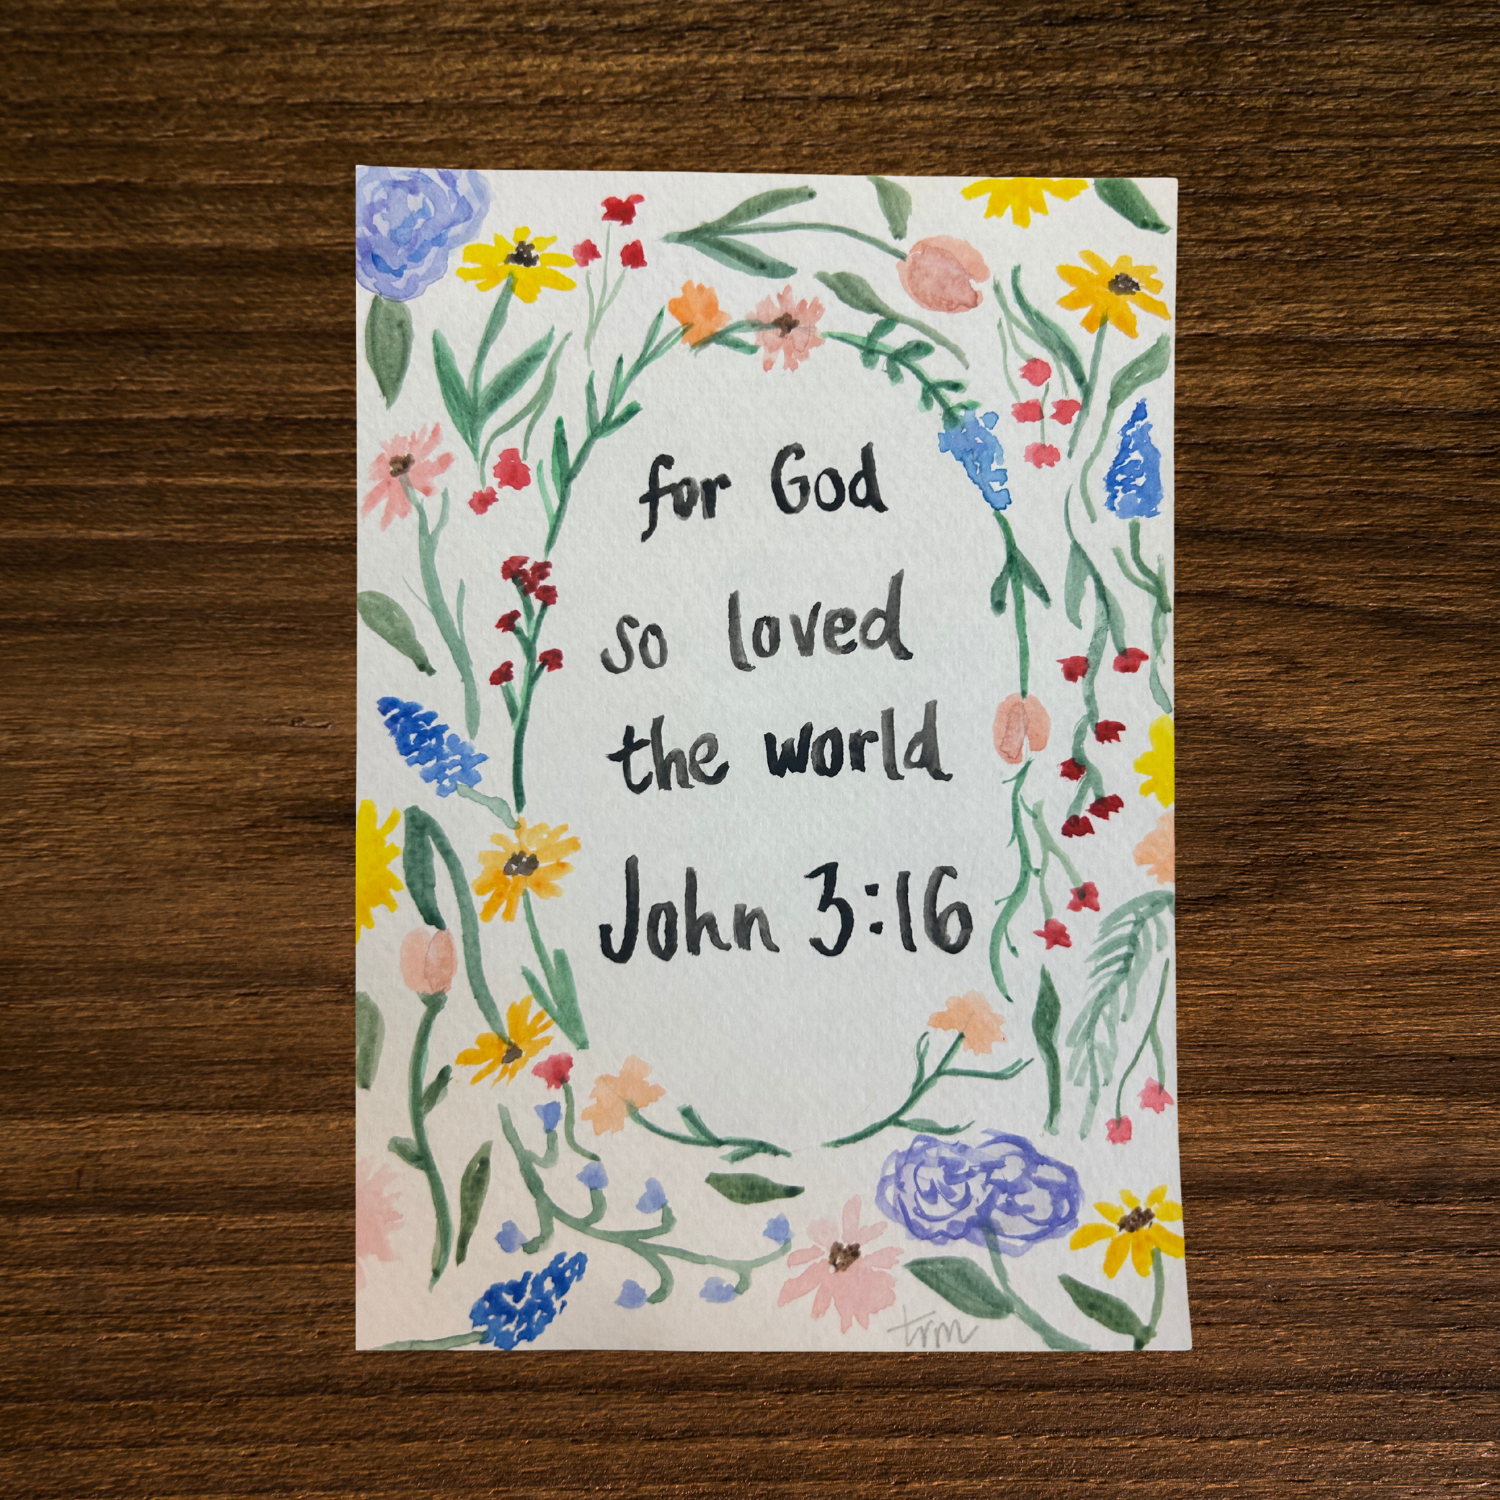 for God
so loved
the world
John 3:16
trm